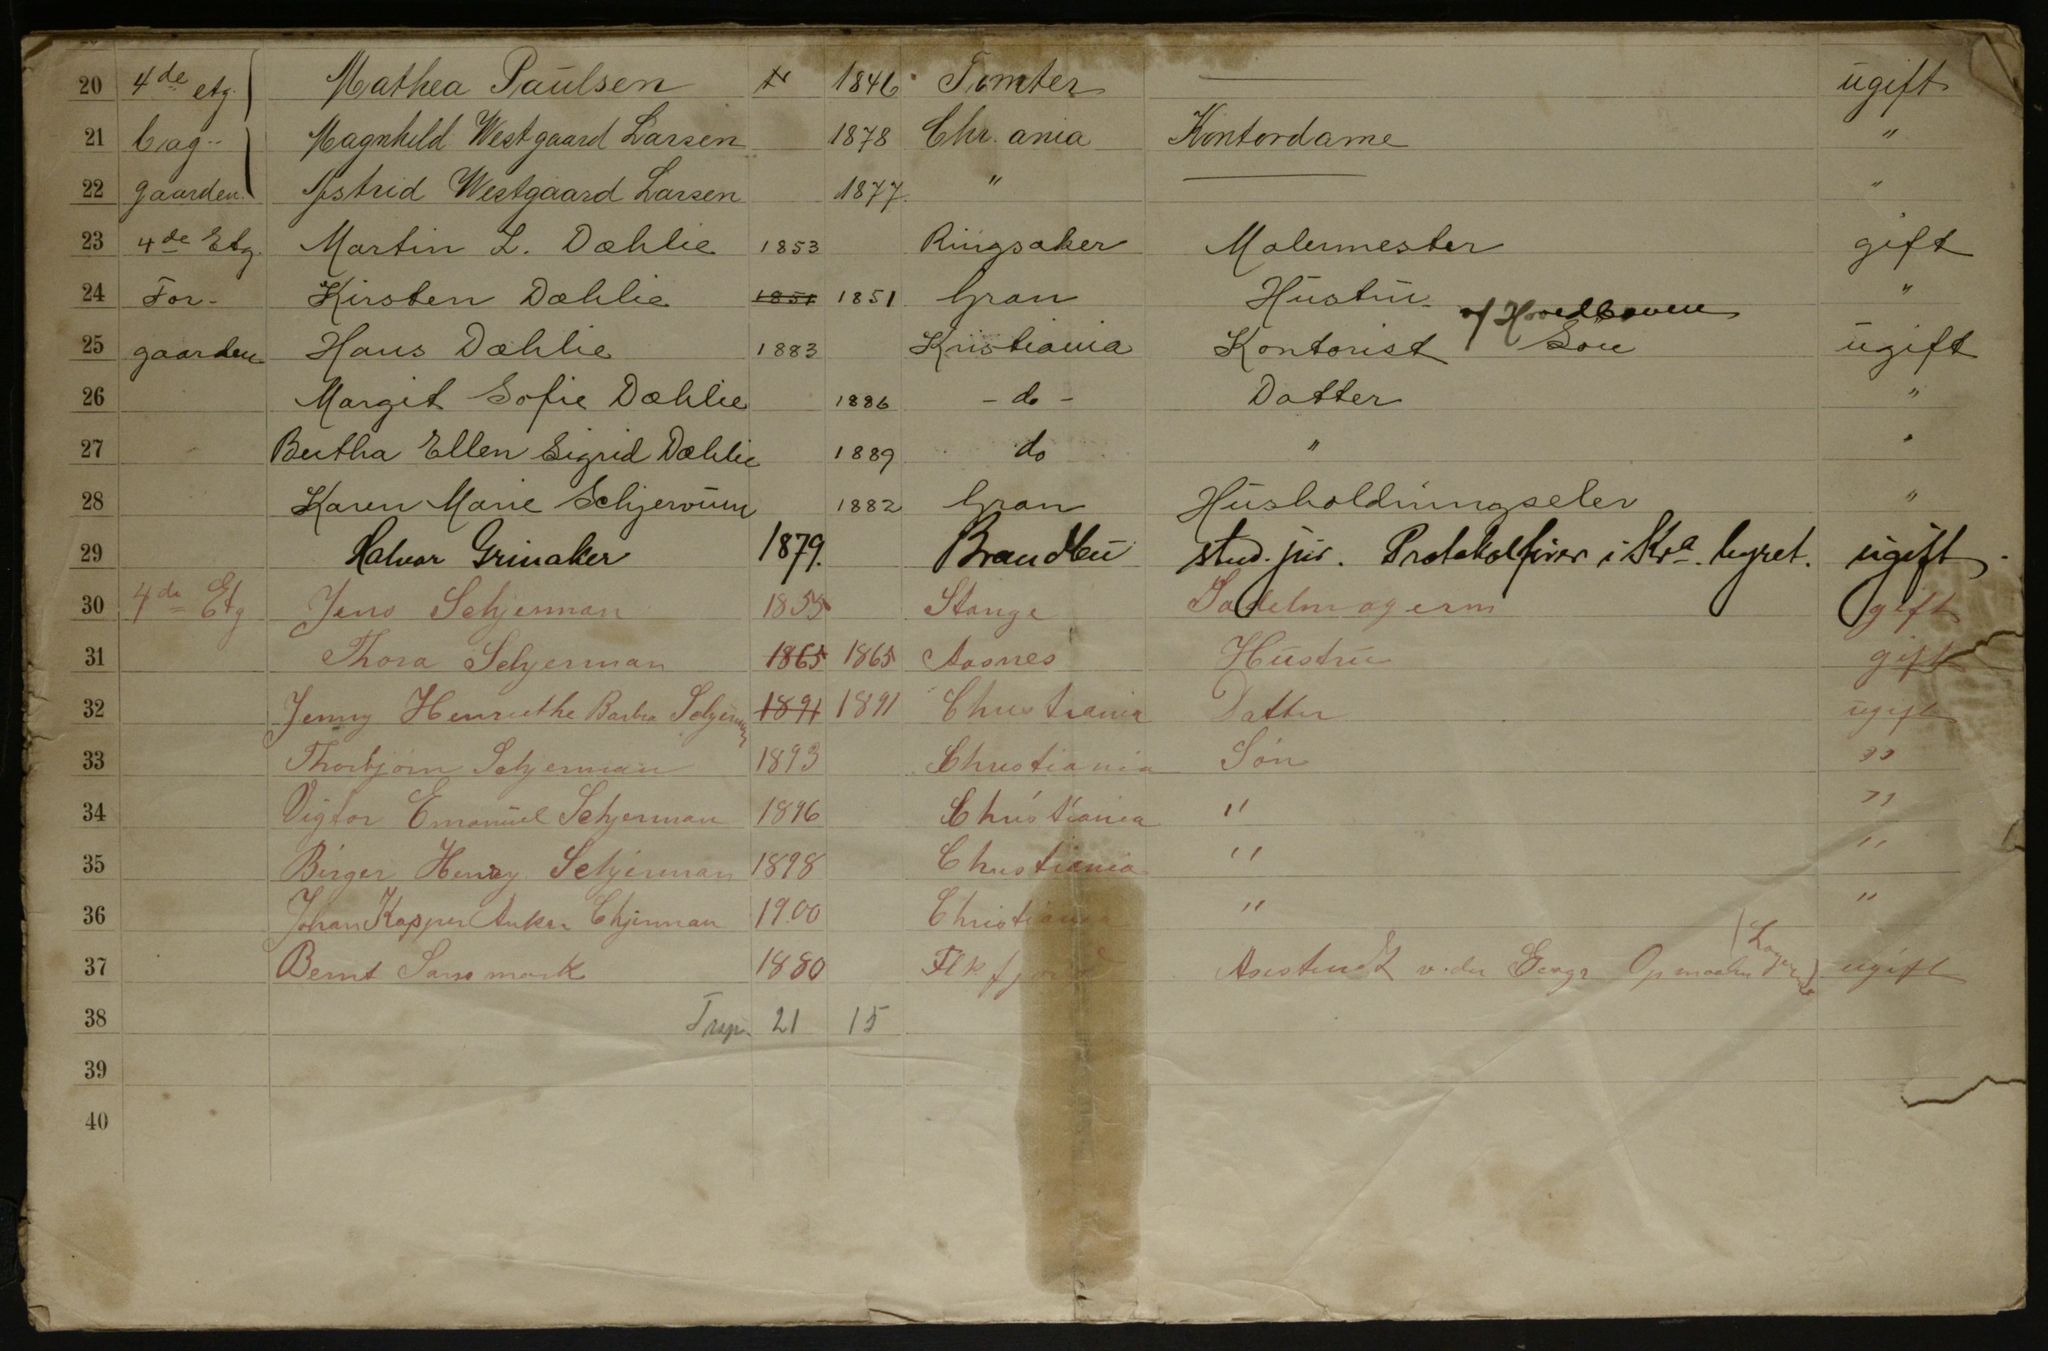 20 4de etg. Mathea Paulsen 1846 Tomter ugift
21 bag- Magnhild Westgaard Larsen 1878 Chr.ania Kontordame "
22 gaarden. Astrid Westgaard Larsen 1877. " "
23 4de Etg. Martin L. Dæhlie 1853 Ringsaker Malermester gift
24 For- Kirsten Dæhlie 1851 1851 Gran Hustru "
25 gaarden Hans Dæhlie 1883 Kristiania Kontorist Søn ugift
26 Margit Sofie Dæhlie 1886 - do - Datter "
27 Bertha Ellen Sigrid Dæhlie 1889 do " "
28 Karen Marie Schjervum 1882 Gran Husholdningselev "
29 Halvor Grinaker 1879. Brandbu stud. jur. Protokolfører i Kra. byret. ugift.
30 4de Etg Jens Schjerman 1855 Stange Sadelmagerm gift
31 Thora Schjerman 1865 1865 Aasnes Hustru gift
32 Jenny Henriethe Barbra Schjerman 1891 1891 Christiania Datter ugift
33 Thorbjørn Schjerman 1893 Christiania Søn "
34 Vigtor Emanuel Schjerman 1896 Christiania " "
35 Birger Henry Schjerman 1898 Christiania " "
36 Johan Kasper Anker Chjerman 1900 Christiania " "
37 Bernt 1880 Asistendt v. den Geogr Opmaaling ugift
38 21 15
39
40